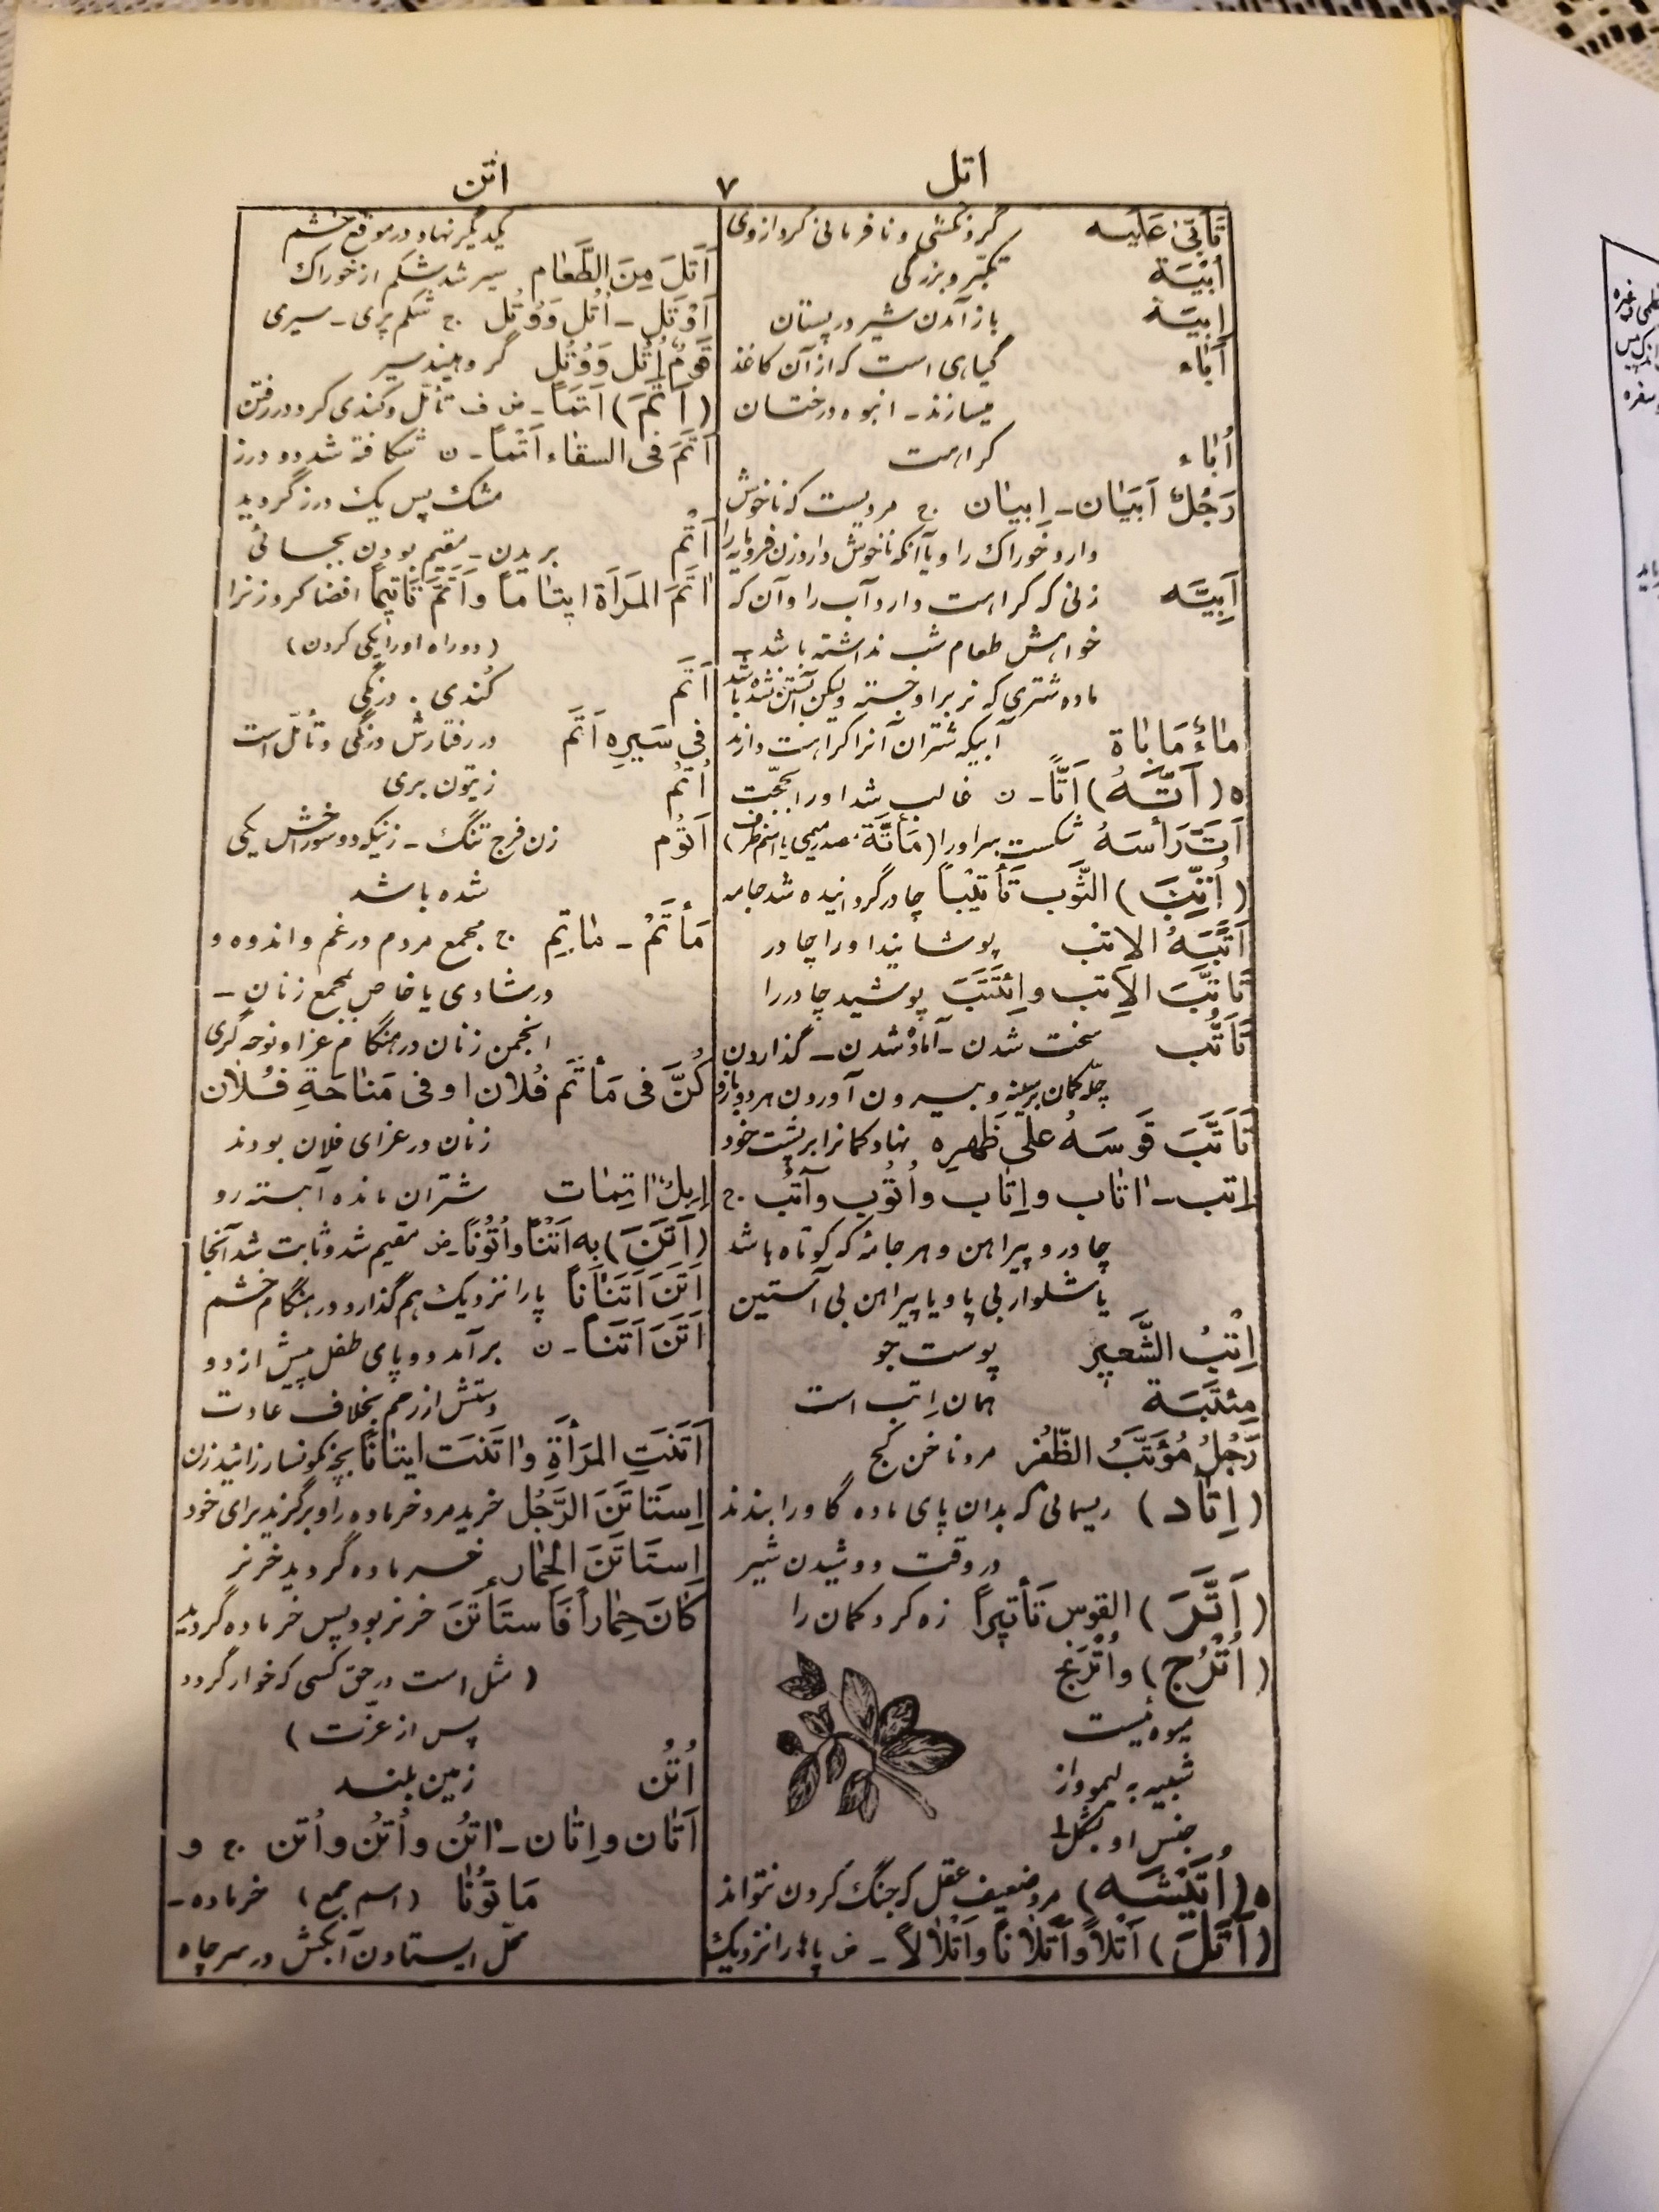 اتل
۷
اتن
تَأَبّیٰ عَلَیه گردنکشی و نافرمانی کرد از وی
اُبِّیَّة تکبّر و بزرگی
اِبیَة باز آمدن شیر در پستان
اَبٰاء گیاهی است که از آن کاغذ
میسازند ـ انبوه درختان
اُبٰاء کراهت
رَجُلٌ اَبَیٰان ـ اِبیٰان ج مردیست که ناخوش
دارد خوراک را و یا آنکه ناخوش دارد زن فرومایه را
آبِیَّه زنی که کراهت دارد آب را و آن که
خواهش طعام شب نداشته باشد ـ
ماده شتری که نر بر او جسته ولیکن آبستن نشده باشد
مٰاءٌ مَابٰاة آبیکه شتران آنرا کراهت دارند
ه (اَتَّهُ) اَتّاً ـ ن غالب شد او را بحجّت
اَتَّ رَأسَهُ شکست سر او را (مَأَتَّة مصدر میمی یا اسم ظرف)
(اُتِّبَ) الثَّوب تَأتیْباً چادر گردانیده شد جامه
اَتَّبَهُ الاتب پوشانید او را چادر
تَاَتَّبَ الاِتب و اِئتَتَبَ پوشید چادر را
تَاَتُّب سخت شدن ـ آماده شدن ـ گذاردن
چلّه کمان بر سینه و بیرون آوردن هر دو بازو
تَاَتَّبَ قَوسَهُ عَلیٰ ظَهرِه نهاد کمانرا بر پشت خود
اِتب ـ اٰتٰاب و اِتٰاب و اُتُوب و آتُب ج
چادر و پیراهن و هر جامهٔ که کوتاه باشد
یا شلوار بی پا و یا پیراهن بی آستین
اِتْبُ الشَّعیر پوست جو
مِئتَبَة همان اِتب است
رَجُلُ مُؤَتَّبُ الظُّفُر مرد ناخن کج
(اِتٰاد) ریسمانی که بدان پای ماده گاو را بندند
در وقت دوشیدن شیر
(اَتَّرَ) القوس تَأتیراً زه کرد کمان را
(اُتْرُج) و اُتْرُنج
میوه ئیست
شبیه به لیمو و از
جنس او بشکل
ه (اُتَیْشَه) مرد ضعیف عقل که جنگ کردن نتواند
(اَتَلَ) اَتْلاً و اَتَلٰاناً و اَتْلٰالاً ـ ض پاها را نزدیک
یکدیگر نهاد در موقع خشم
اَتَلَ مِنَ الطَّعٰام سیر شد شکم از خوراک
اَوْتَل ـ اُتُل وَ وُتُل ج شکم پری ـ سیری
قَومٌ اُتُل وَ وُتُل گروهیند سیر
(اَتَمَ) اَتَماً ـ ض ف تأمّل و کندی کرد در رفتن
اَتَمَ فی السقاء اَتماً ـ ن شکافته شد دو درز
مشک پس یک درز گردید
اَتْم بریدن ـ مقیم بودن بجائی
اٰتَمَ المَرأَة ایتٰاماً و اَتَّمَ تَاتیماً افضا کرد زنرا
(دو راه او را یکی کردن)
اَتَم کُندی . درنگی
فی سَیرِهِ اَتَم در رفتارش درنگی و تأمّل است
اُتُم زیتون بری
اَتُوم زن فرج تنگ ـ زنیکه دو سوراخش یکی
شده باشد
مَأتَمْ ـ مٰاتِم ج مجمع مردم در غم و اندوه و
در شادی یا خاص بمجمع زنان ـ
انجمن زنان در هنگام عزا و نوحه گری
کُنَّ فی مَأتَم فُلان او فی مَنٰاحَةِ فُلٰان
زنان در عزای فلان بودند
اِبِلٌ اٰتِمٰات شتران مانده آهسته رو
(اَتَنَ) بِه اَتْناً و اُتُوناً ـ ض مقیم شد و ثابت شد آنجا
اَتَنَ اَتَنٰاناً پا را نزدیک هم گذارد در هنگام خشم
اَتَنَ اَتَنا ـ ن برآمد دو پای طفل پیش از دو
دستش از رحم بخلاف عادت
اَتَنَتِ المَرأَةِ و اٰتَنَت ایتٰاناً بچه نگونسار زائید زن
اِستَاتَنَ الرَّجُل خرید مرد خر ماده را و برگزید برای خود
اِستَاتَنَ الحِمٰار خر ماده گردید خر نر
کٰانَ حِمٰاراً فَاستَأتَنَ خر نر بود پس خر ماده گردید
(مثل است در حق کسی که خوار گردد
پس از عزّت)
اُتُن زمین بلند
اَتٰان و اِتٰان ـ اٰتُن و اُتُن و اُتن ج و
مَاتُونٰا (اسم جمع) خر ماده ـ
محّل ایستادن آبکش در سر چاه